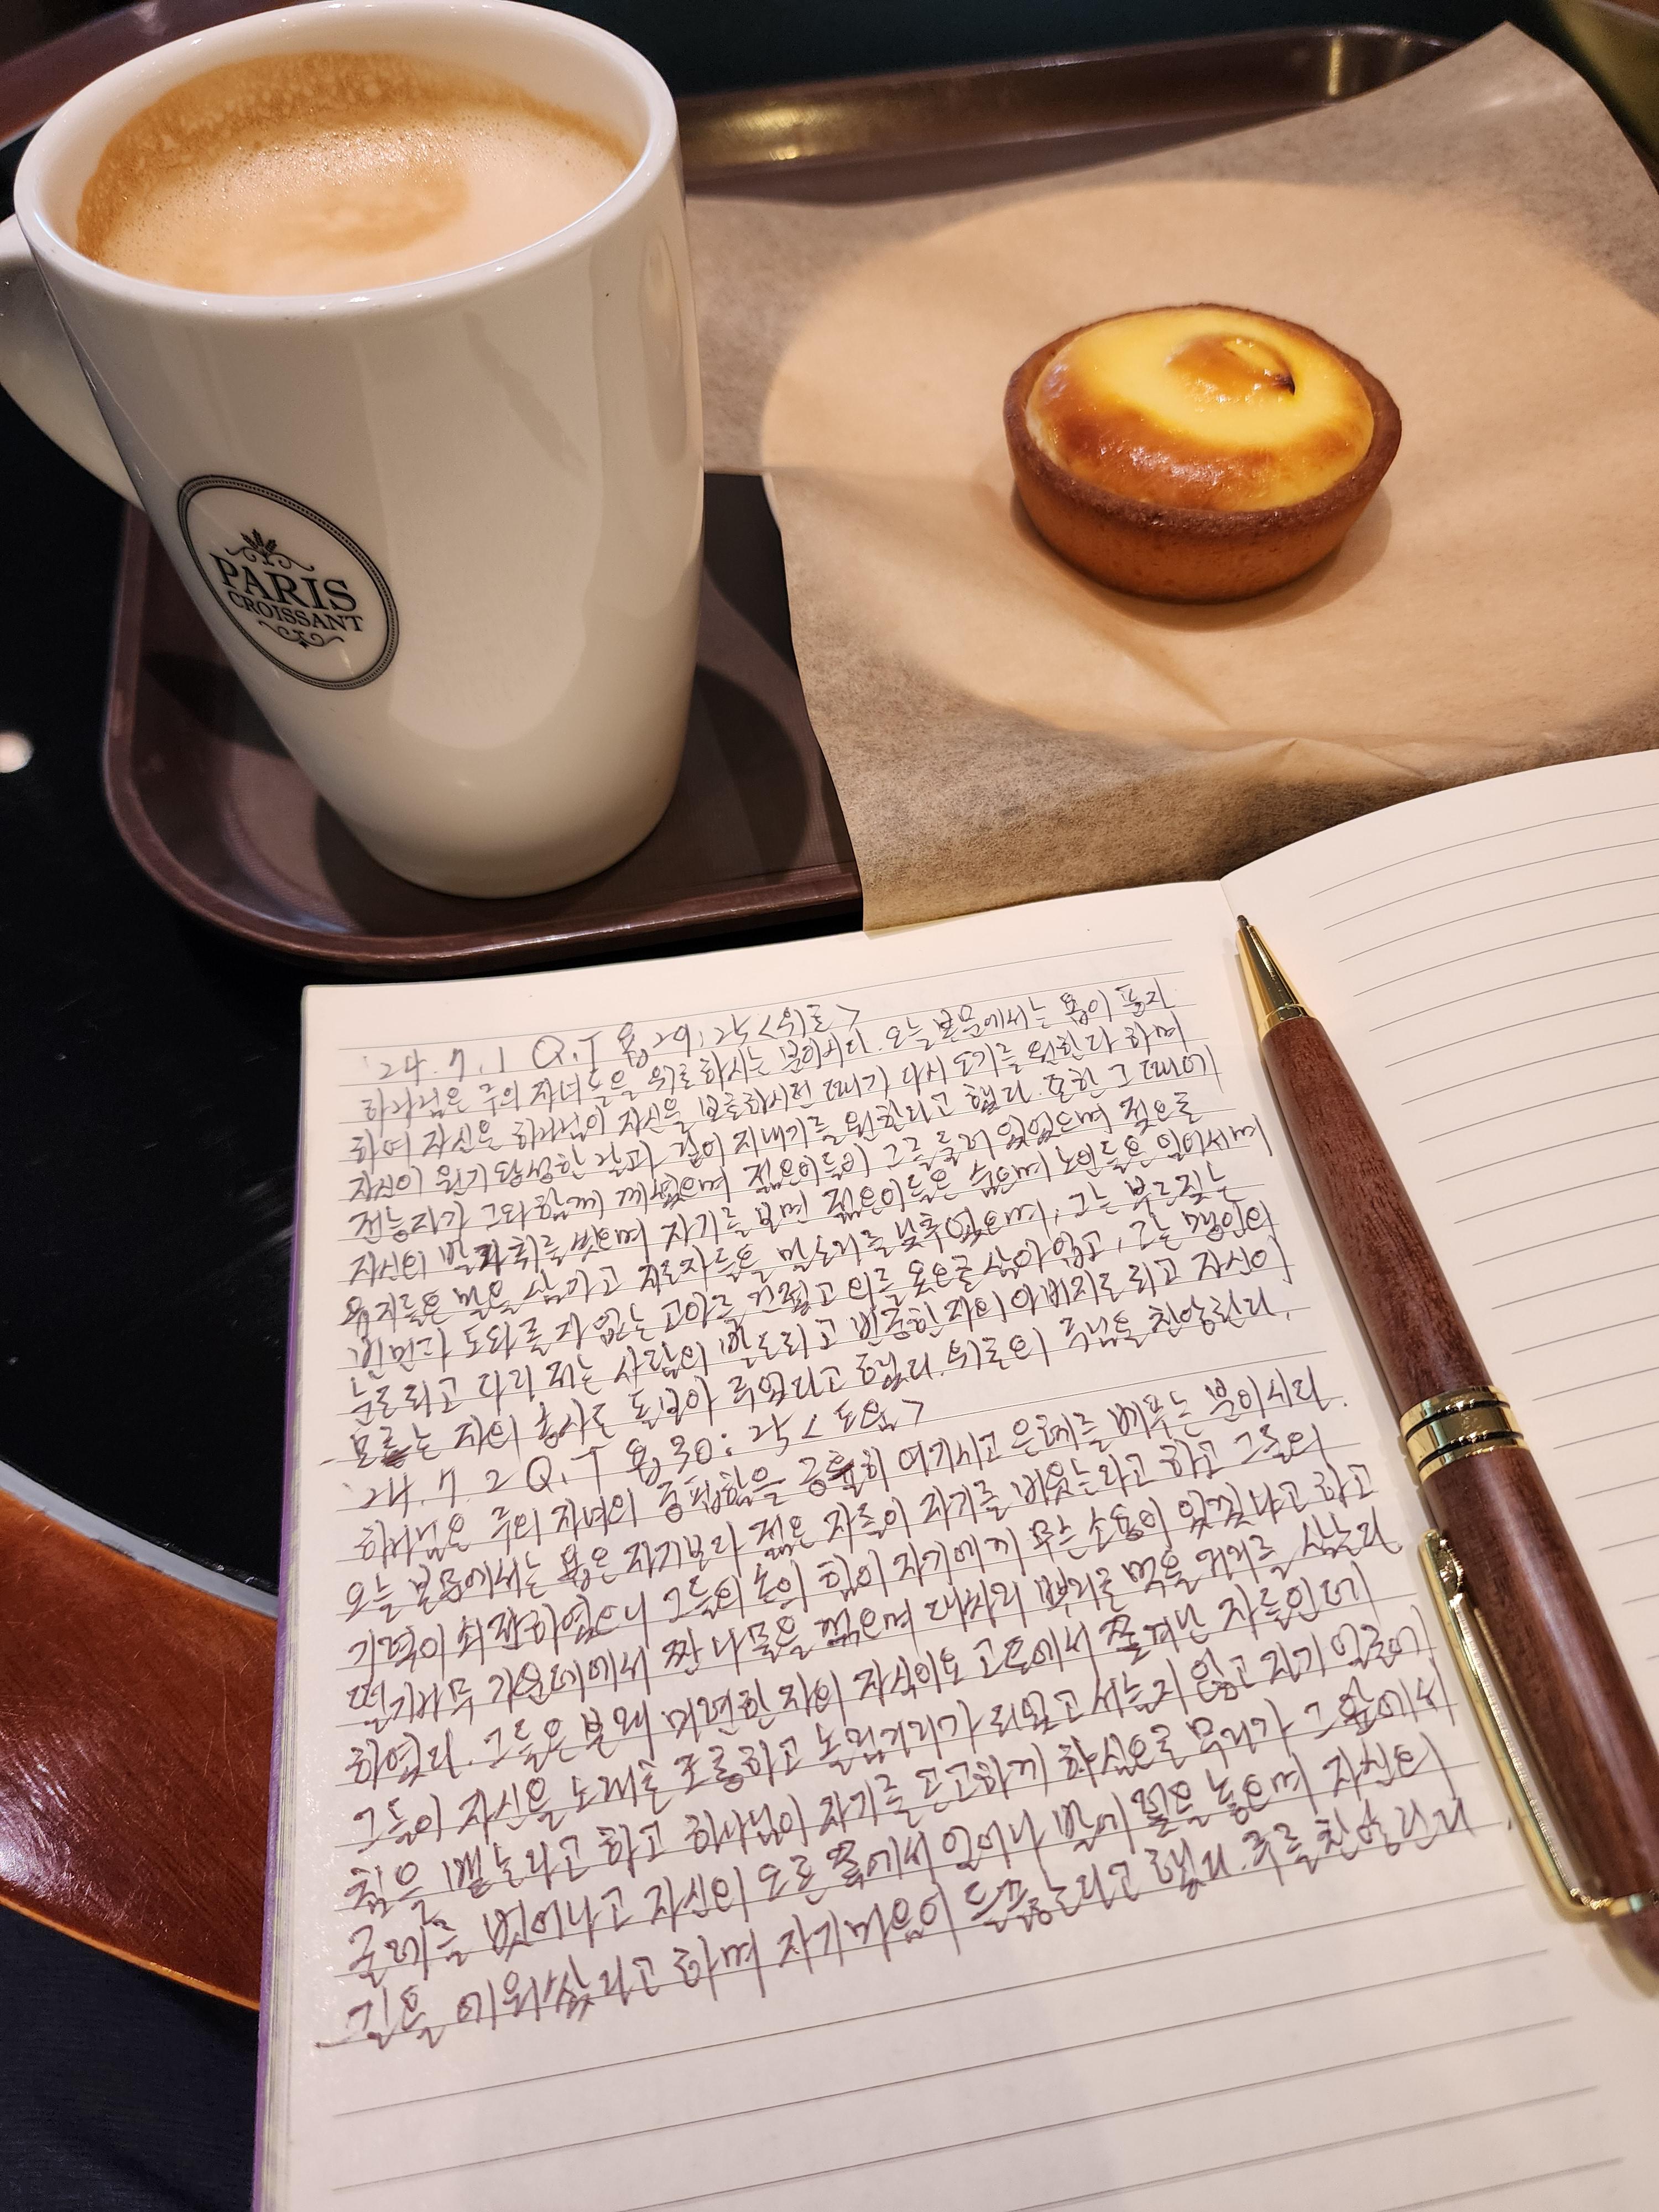 PARIS
CROISSANT
'24. 7. 1 Q.T 욥 29:25 <위로>
하나님은 주의 자녀들을 위로하시는 분이시다. 오늘 본문에서는 욥이 풍자
하여 자신은 하나님이 자신을 보호하시던 때가 다시 오기를 원한다 하며
자신이 원기 왕성한 날과 같이 지내기를 원한다고 했다. 또한 그 때에
전능자가 그와 함께 계셨으며 젊은이들이 그를 둘러 있었으며 젖으로
자신의 발자취를 씻으며 자기를 보면 젊은이들은 숨으며 노인들은 일어서며
유지들은 말을 삼가고 지도자들은 말소리를 낮추었으며, 그는 부르짖는
빈민과 도와줄 자 없는 고아를 건졌고 의를 옷으로 삼아 입고, 그는 맹인의
눈도 되고 다리 저는 사람의 발도 되고 빈궁한 자의 아버지도 되고 자신이
모르는 자의 송사도 돌보아 주었다고 했다. 위로의 주님을 찬양한다.
'24. 7. 2 Q.T 욥 30:25 <도움>
하나님은 주의 자녀의 궁핍함을 긍휼히 여기시고 은혜를 베푸는 분이시다.
오늘 본문에서는 욥은 자기보다 젊은 자들이 자기를 비웃는다고 하고 그들의
기력이 쇠잔하였으니 그들의 손의 힘이 자기에게 무슨 소용이 있겠냐고 하고
떨기나무 가운데에서 짠 나물을 꺾으며 대싸리 뿌리를 먹을 거리를 삼는다
하였다. 그들은 본래 미련한 자의 자식이요 고토에서 쫓겨난 자들인데
그들이 자신을 노래로 조롱하고 놀림거리가 되었고 서슴지 않고 자기 얼굴에
침을 뱉는다고 하고 하나님이 자기를 곤고하게 하심으로 무리가 그 앞에서
굴레를 벗어나고 자신의 오른쪽에서 일어나 발에 덫을 놓으며 자신의
길을 에워쌌다고 하며 자기 마음이 들끓는다고 했다. 주를 찬양한다.